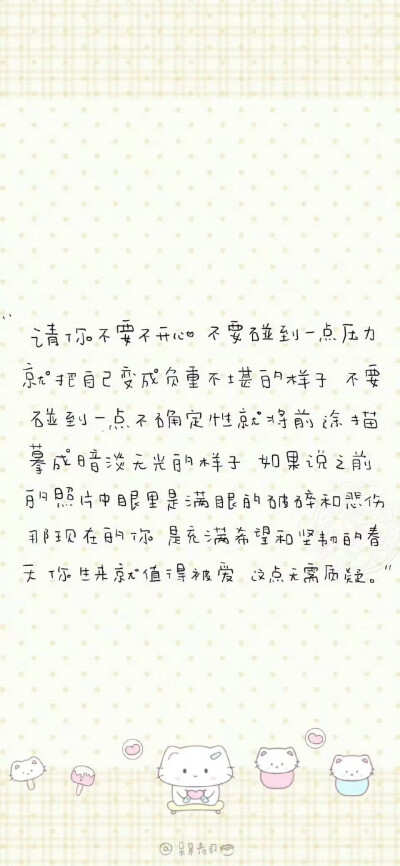 “请你不要不开心 不要碰到一点压力
就把自己变成负重不堪的样子 不要
碰到一点不确定性就将前途描
摹成暗淡无光的样子 如果说之前
的照片中眼里是满眼的破碎和悲伤
那现在的你 是充满希望和坚韧的春
天 你生来就值得被爱 这点无需质疑。”